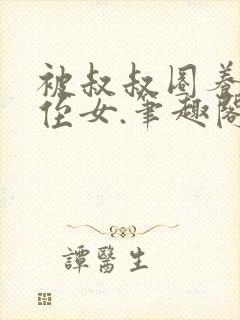 被叔叔圈养
侄女.笔趣阁
譚醫生